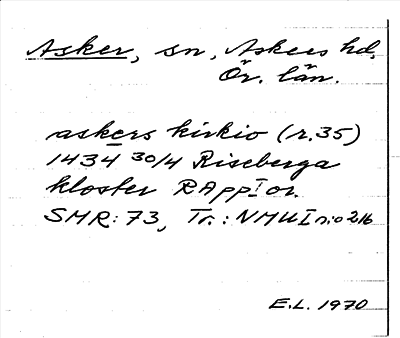 Asker, sn, Askers hd,
Ör. län.
askers kirkio (r. 35)
1434 30/4 Riseberga
kloster RAppI or.
SMR: 73, Tr.: NMU I n:o 216
E.L. 1970